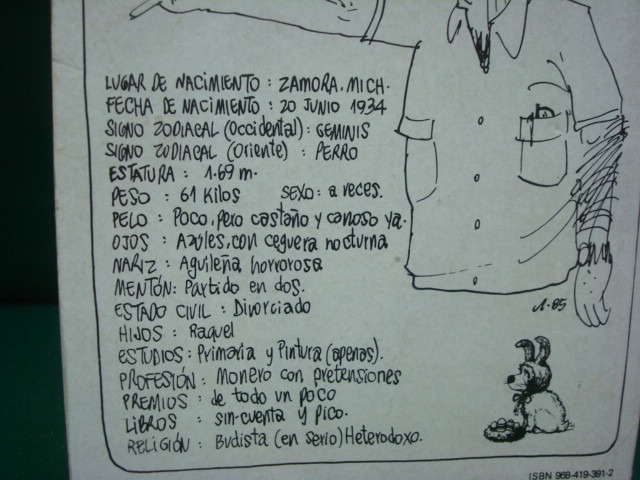 LUGAR DE NACIMIENTO : ZAMORA, MICH.
FECHA DE NACIMIENTO : 20 JUNIO 1934
SIGNO ZODIACAL (Occidental) : GEMINIS
SIGNO ZODIACAL (Oriente) : PERRO
ESTATURA : 1.69 m.
PESO : 61 Kilos SEXO: a veces.
PELO : Poco, pero castaño y canoso ya.
OJOS : Azules, con ceguera nocturna
NARIZ : Aguileña, horrorosa
MENTÓN: Partido en dos.
ESTADO CIVIL : Divorciado
HIJOS : Raquel
ESTUDIOS : Primaria y Pintura (apenas).
PROFESIÓN : Monero con pretensiones
PREMIOS : de todo un poco
LIBROS : sin-cuenta y pico.
RELIGIÓN : Budista (en serio) Heterodoxo.
A-85
ISBN 968-419-391-2